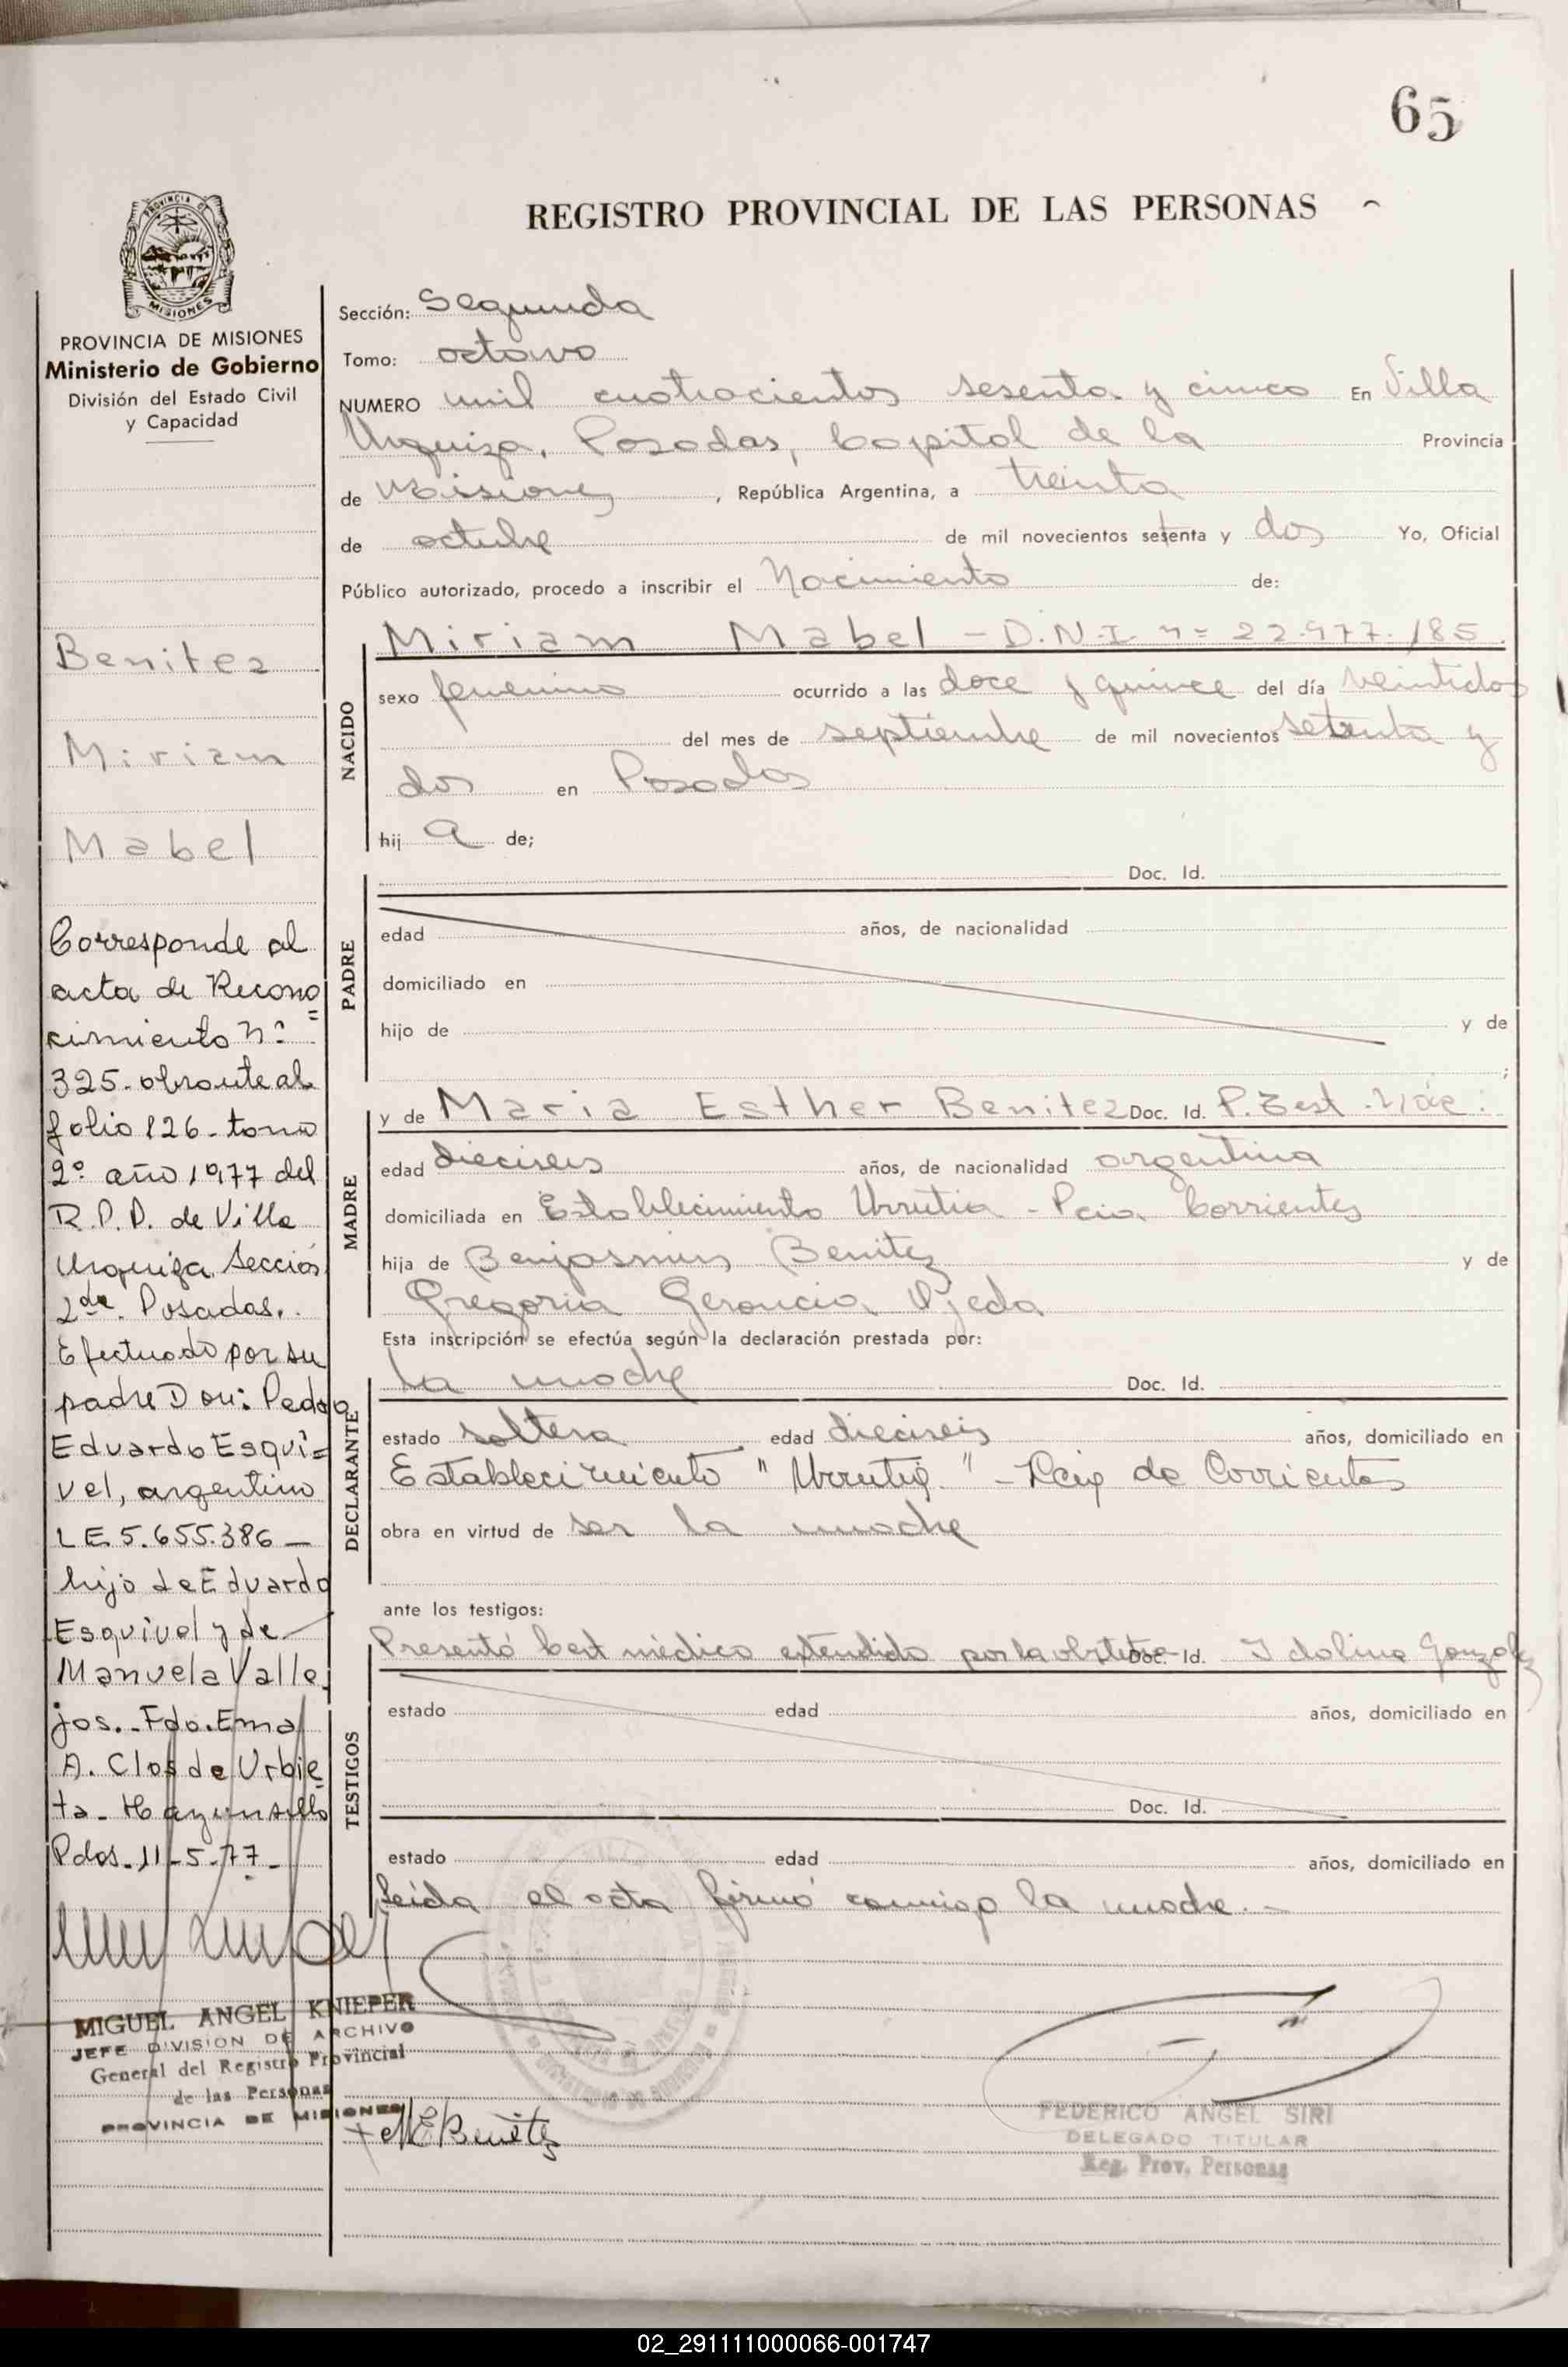 65
REGISTRO PROVINCIAL DE LAS PERSONAS
PROVINCIA DE MISIONES
Ministerio de Gobierno
División del Estado Civil
y Capacidad
Benitez
Miriam
Mabel
Corresponde al
acta de Recono
cimiento Nº
325- obrante al
folio 126- tomo
2º año 1977 del
R.P.P. de Villa
Urquiza Sección
2da. Posadas.
Efectuado por su
padre Don: Pedro
Eduardo Esqui=
vel, argentino
LE 5.655.386 —
hijo de Eduardo
Esquivel y de
Manuela Valle
jos.- Fdo. Ema
A. Clos de Urbie
ta- Hay un sello
Pdas- 11-5-77-
MIGUEL ANGEL KNIEPER
JEFE DIVISION DE ARCHIVO
General del Registro Provincial
de las Personas
PROVINCIA DE MISIONES
Sección: Segunda
Tomo: octavo
NUMERO mil cuatrocientos sesenta y cinco En Villa
Urquiza, Posadas, Capital de la Provincia
de Misiones, República Argentina, a treinta
de octubre de mil novecientos setenta y dos Yo, Oficial
Público autorizado, procedo a inscribir el Nacimiento de:
NACIDO
Miriam Mabel - D.N.I. nº 22.977.185
sexo femenino ocurrido a las doce y quince del día veintidos
del mes de septiembre de mil novecientos setenta y
dos en Posadas
hij a de;
PADRE
Doc. Id.
edad años, de nacionalidad
domiciliado en
hijo de y de
;
MADRE
y de Maria Esther Benitez Doc. Id.
edad dieciseis años, de nacionalidad argentina
domiciliada en Establecimiento Urrutia - Pcia Corrientes
hija de Benjasmin Benitez y de
Gregoria Geroncia Ojeda
Esta inscripción se efectúa según la declaración prestada por:
DECLARANTE
la madre Doc. Id.
estado soltera edad dieciseis años, domiciliado en
Establecimiento "Urrutia" - Pcia de Corrientes
obra en virtud de ser la madre
ante los testigos:
TESTIGOS
Presentó Cert médico extendido por la obstetra Doc. Id. Idolina Gonzalez
estado edad años, domiciliado en
Doc. Id.
estado edad años, domiciliado en
Leida el acta firmó conmigo la madre.-
M E Benitez
FEDERICO ANGEL SIRI
DELEGADO TITULAR
Reg. Prov. Personas
02_291111000066-001747